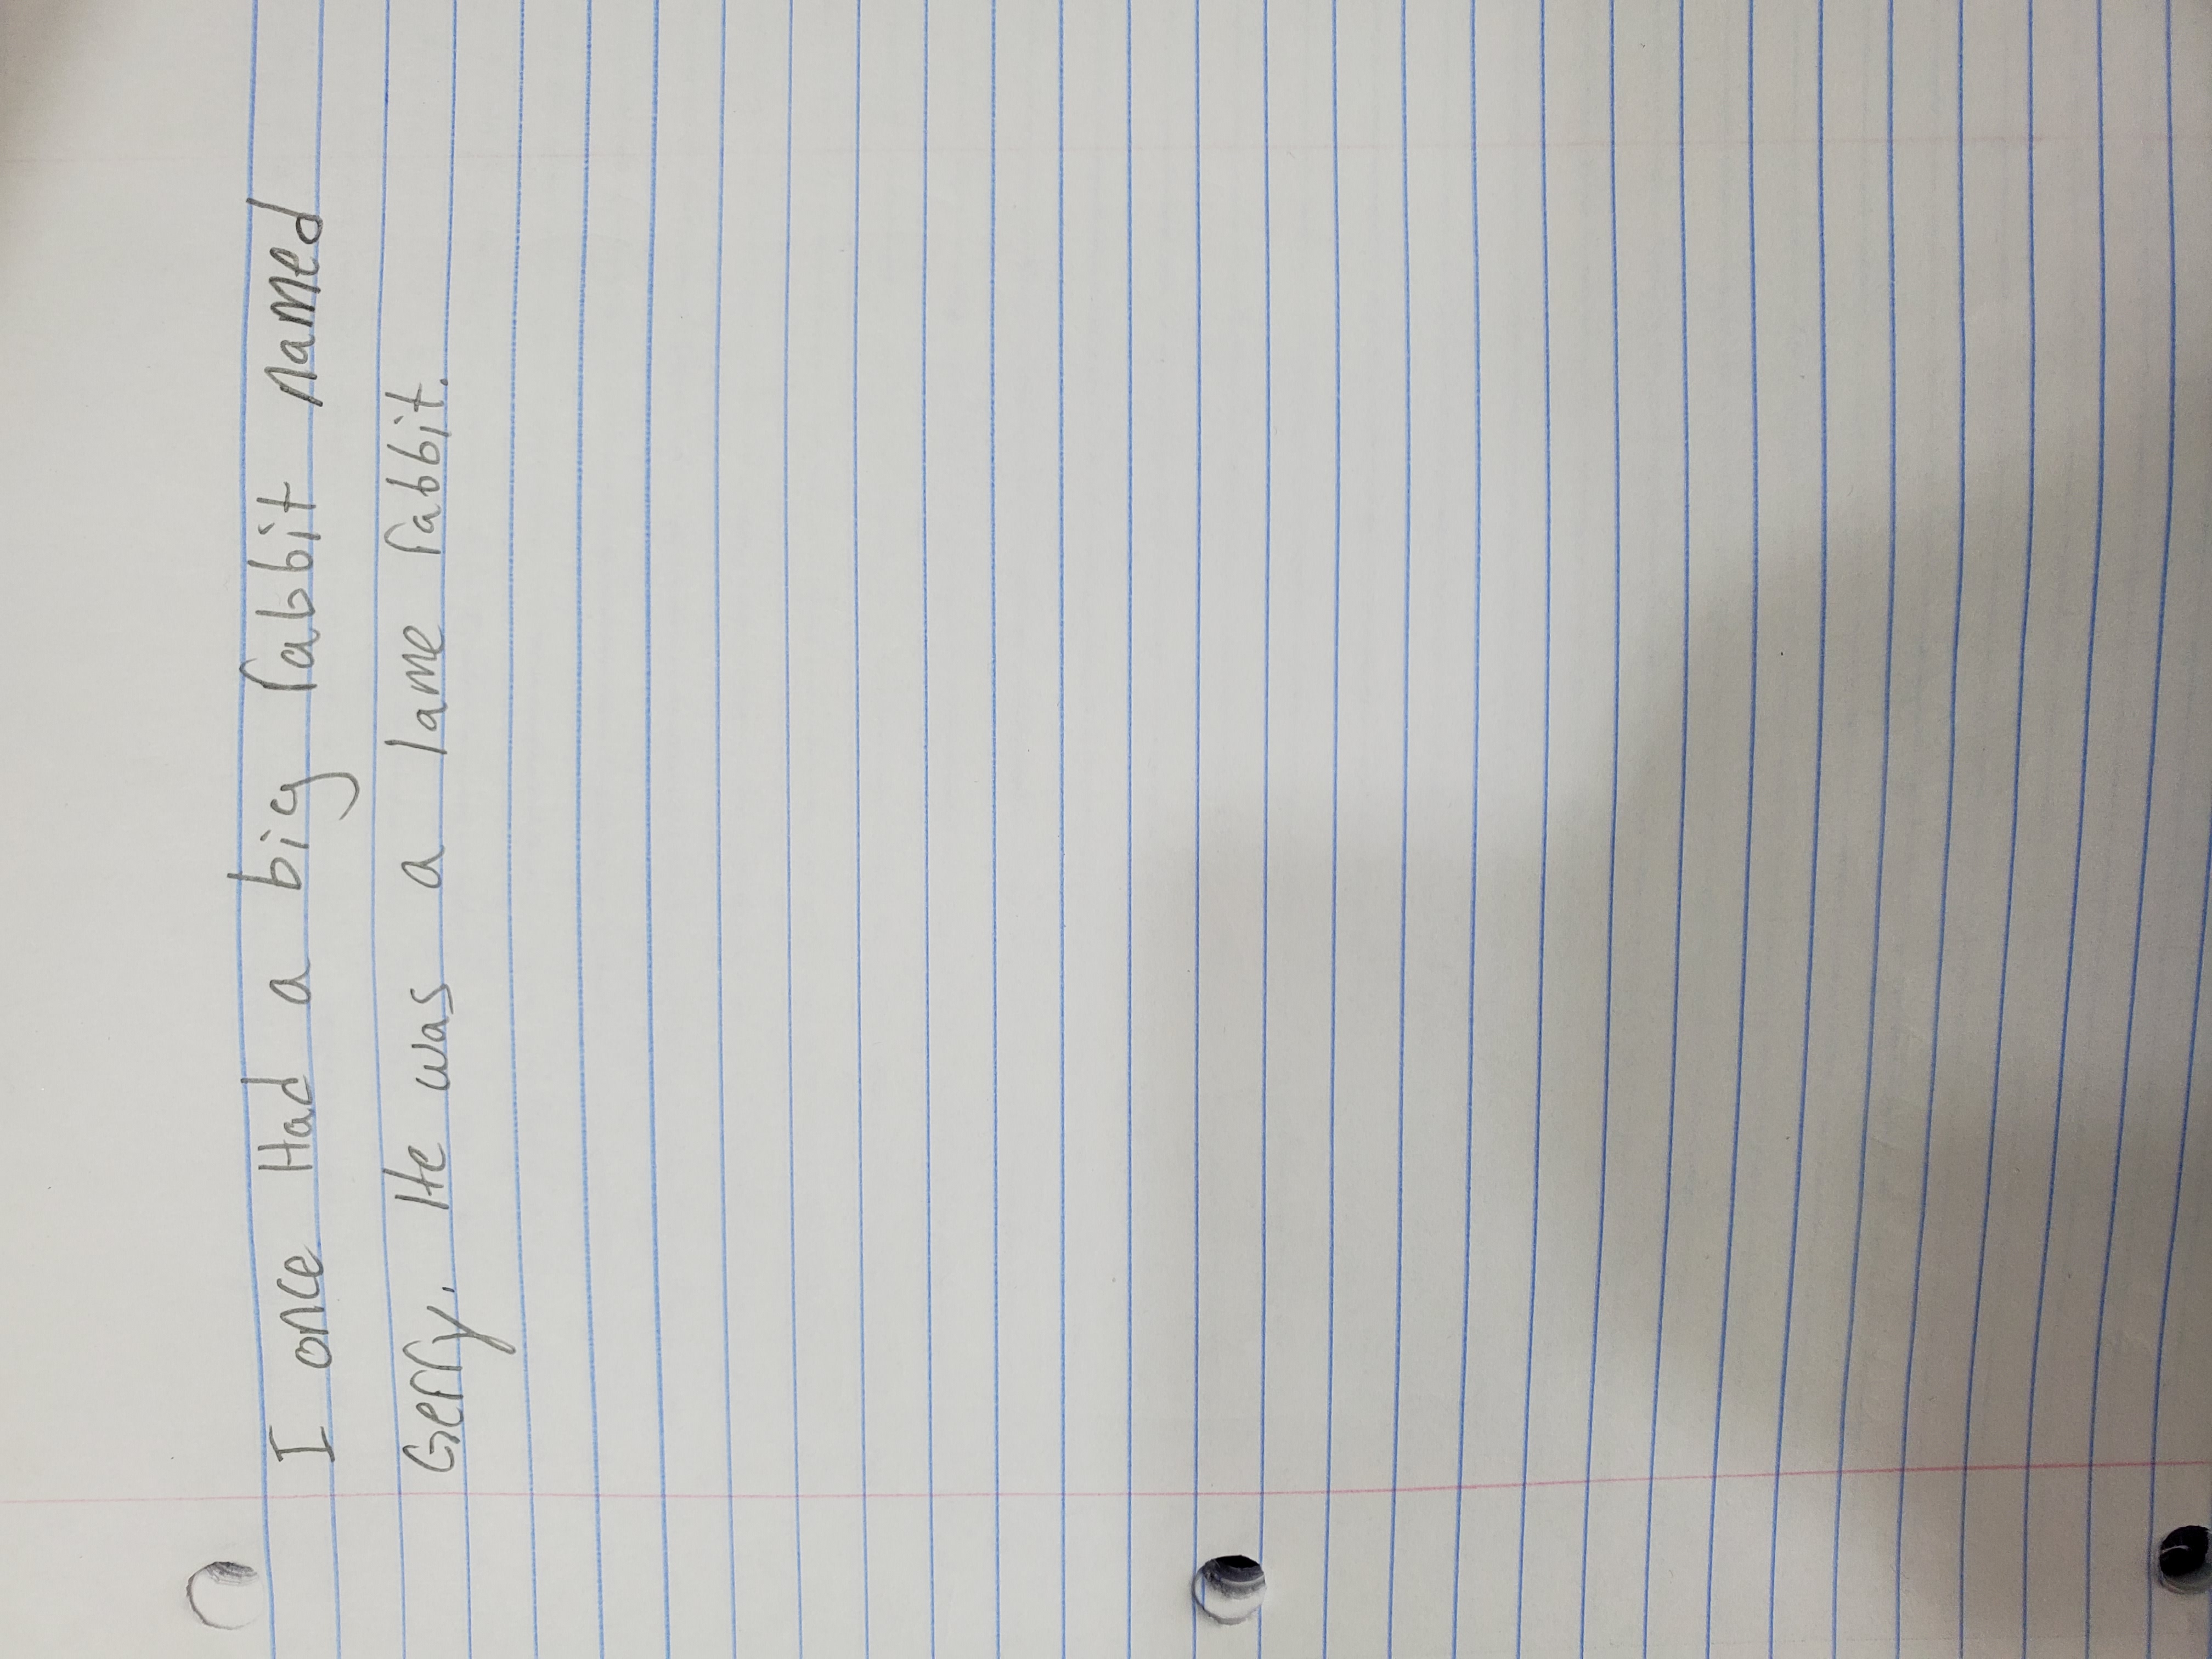 I once Had a big rabbit named
Gerry. He was a lame rabbit.